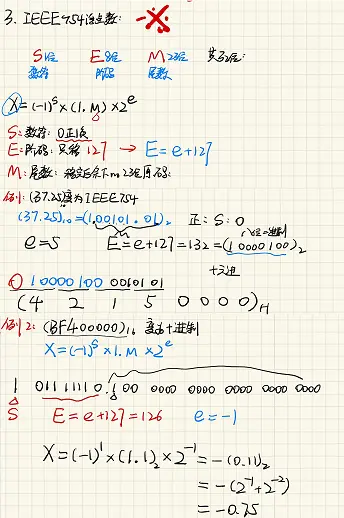 3. IEEE754浮点数:
S 1位 E 8位 M 23位 共32位
数符 阶码 尾数
X=(-1)^s×(1.M)×2^e
S:数符: 0正1负
E:阶码:只移127 → E=e+127
M:尾数: 23位原码:
例1:(37.25)变为IEEE754
(37.25)₁₀=(100101.01)₂ 正:S:0
e=5 E=e+127=132=(10000100)₂
0 10000100 0010101
(4 2 1 5 0 0 0 0)H
例2:(BF400000)₁₆变为十进制
X=(-1)^s×1.M×2^e
1 0111 1110 .100 0000 0000 0000 0000 0000
S E=e+127=126 e=-1
X=(-1)^1×(1.1)₂×2^-1=-(0.11)₂
=-(2^-1+2^-2)
=-0.75